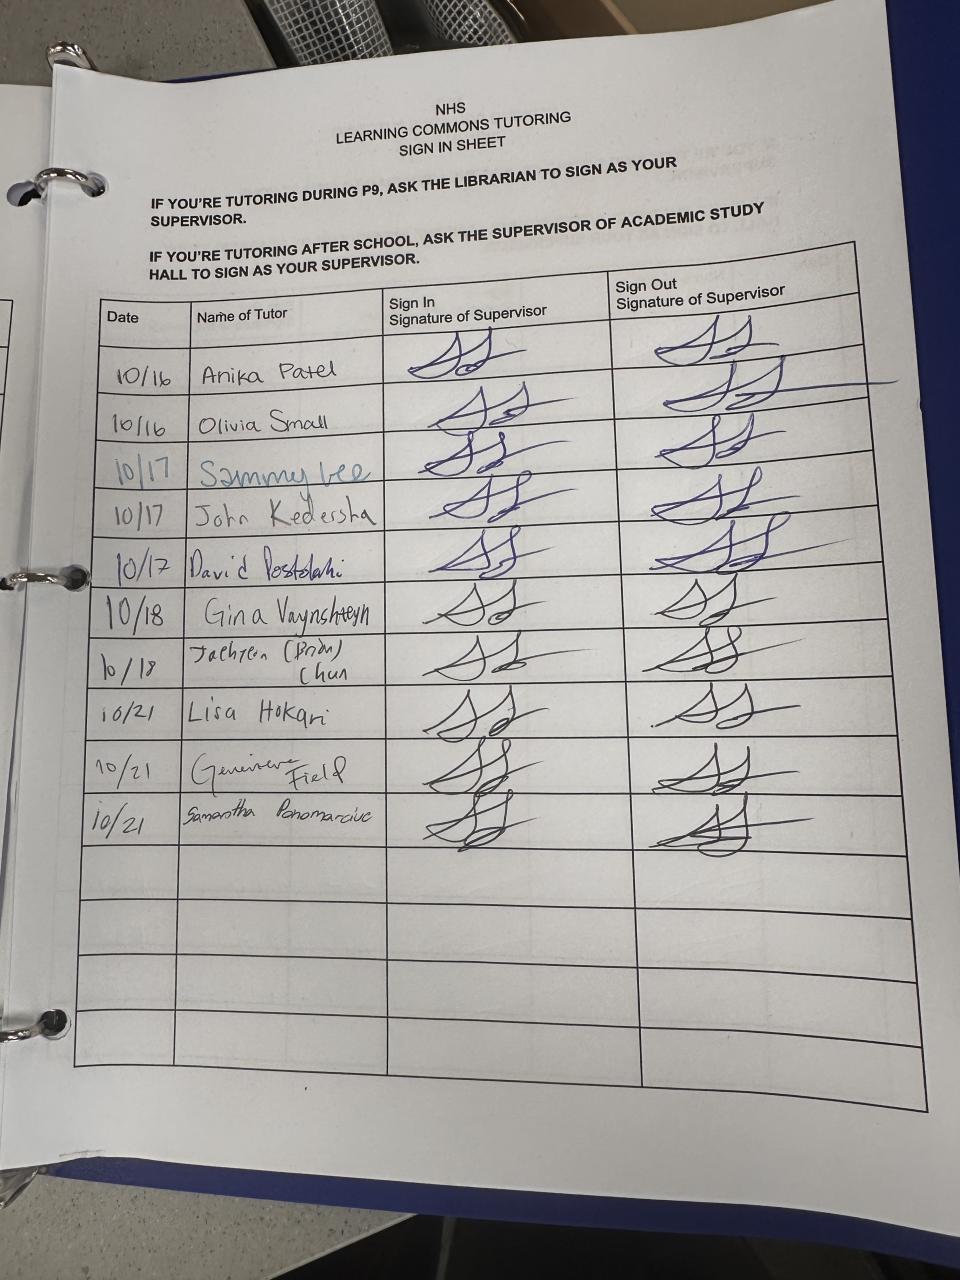 NHS
LEARNING COMMONS TUTORING
SIGN IN SHEET
IF YOU'RE TUTORING DURING P9, ASK THE LIBRARIAN TO SIGN AS YOUR
SUPERVISOR.
IF YOU'RE TUTORING AFTER SCHOOL, ASK THE SUPERVISOR OF ACADEMIC STUDY
HALL TO SIGN AS YOUR SUPERVISOR.
Date Name of Tutor Sign In Sign Out
Signature of Supervisor Signature of Supervisor
10/16 Anika Patel
10/16 Olivia Small
10/17 Sammy Lee
10/17 John Kedersha
10/17 David Postolahi
10/18 Gina Vaynshteyn
10/18 (Brian)
Chun
10/21 Lisa Hokari
10/21 Genevieve
Field
10/21 Samantha Ponomarciuc